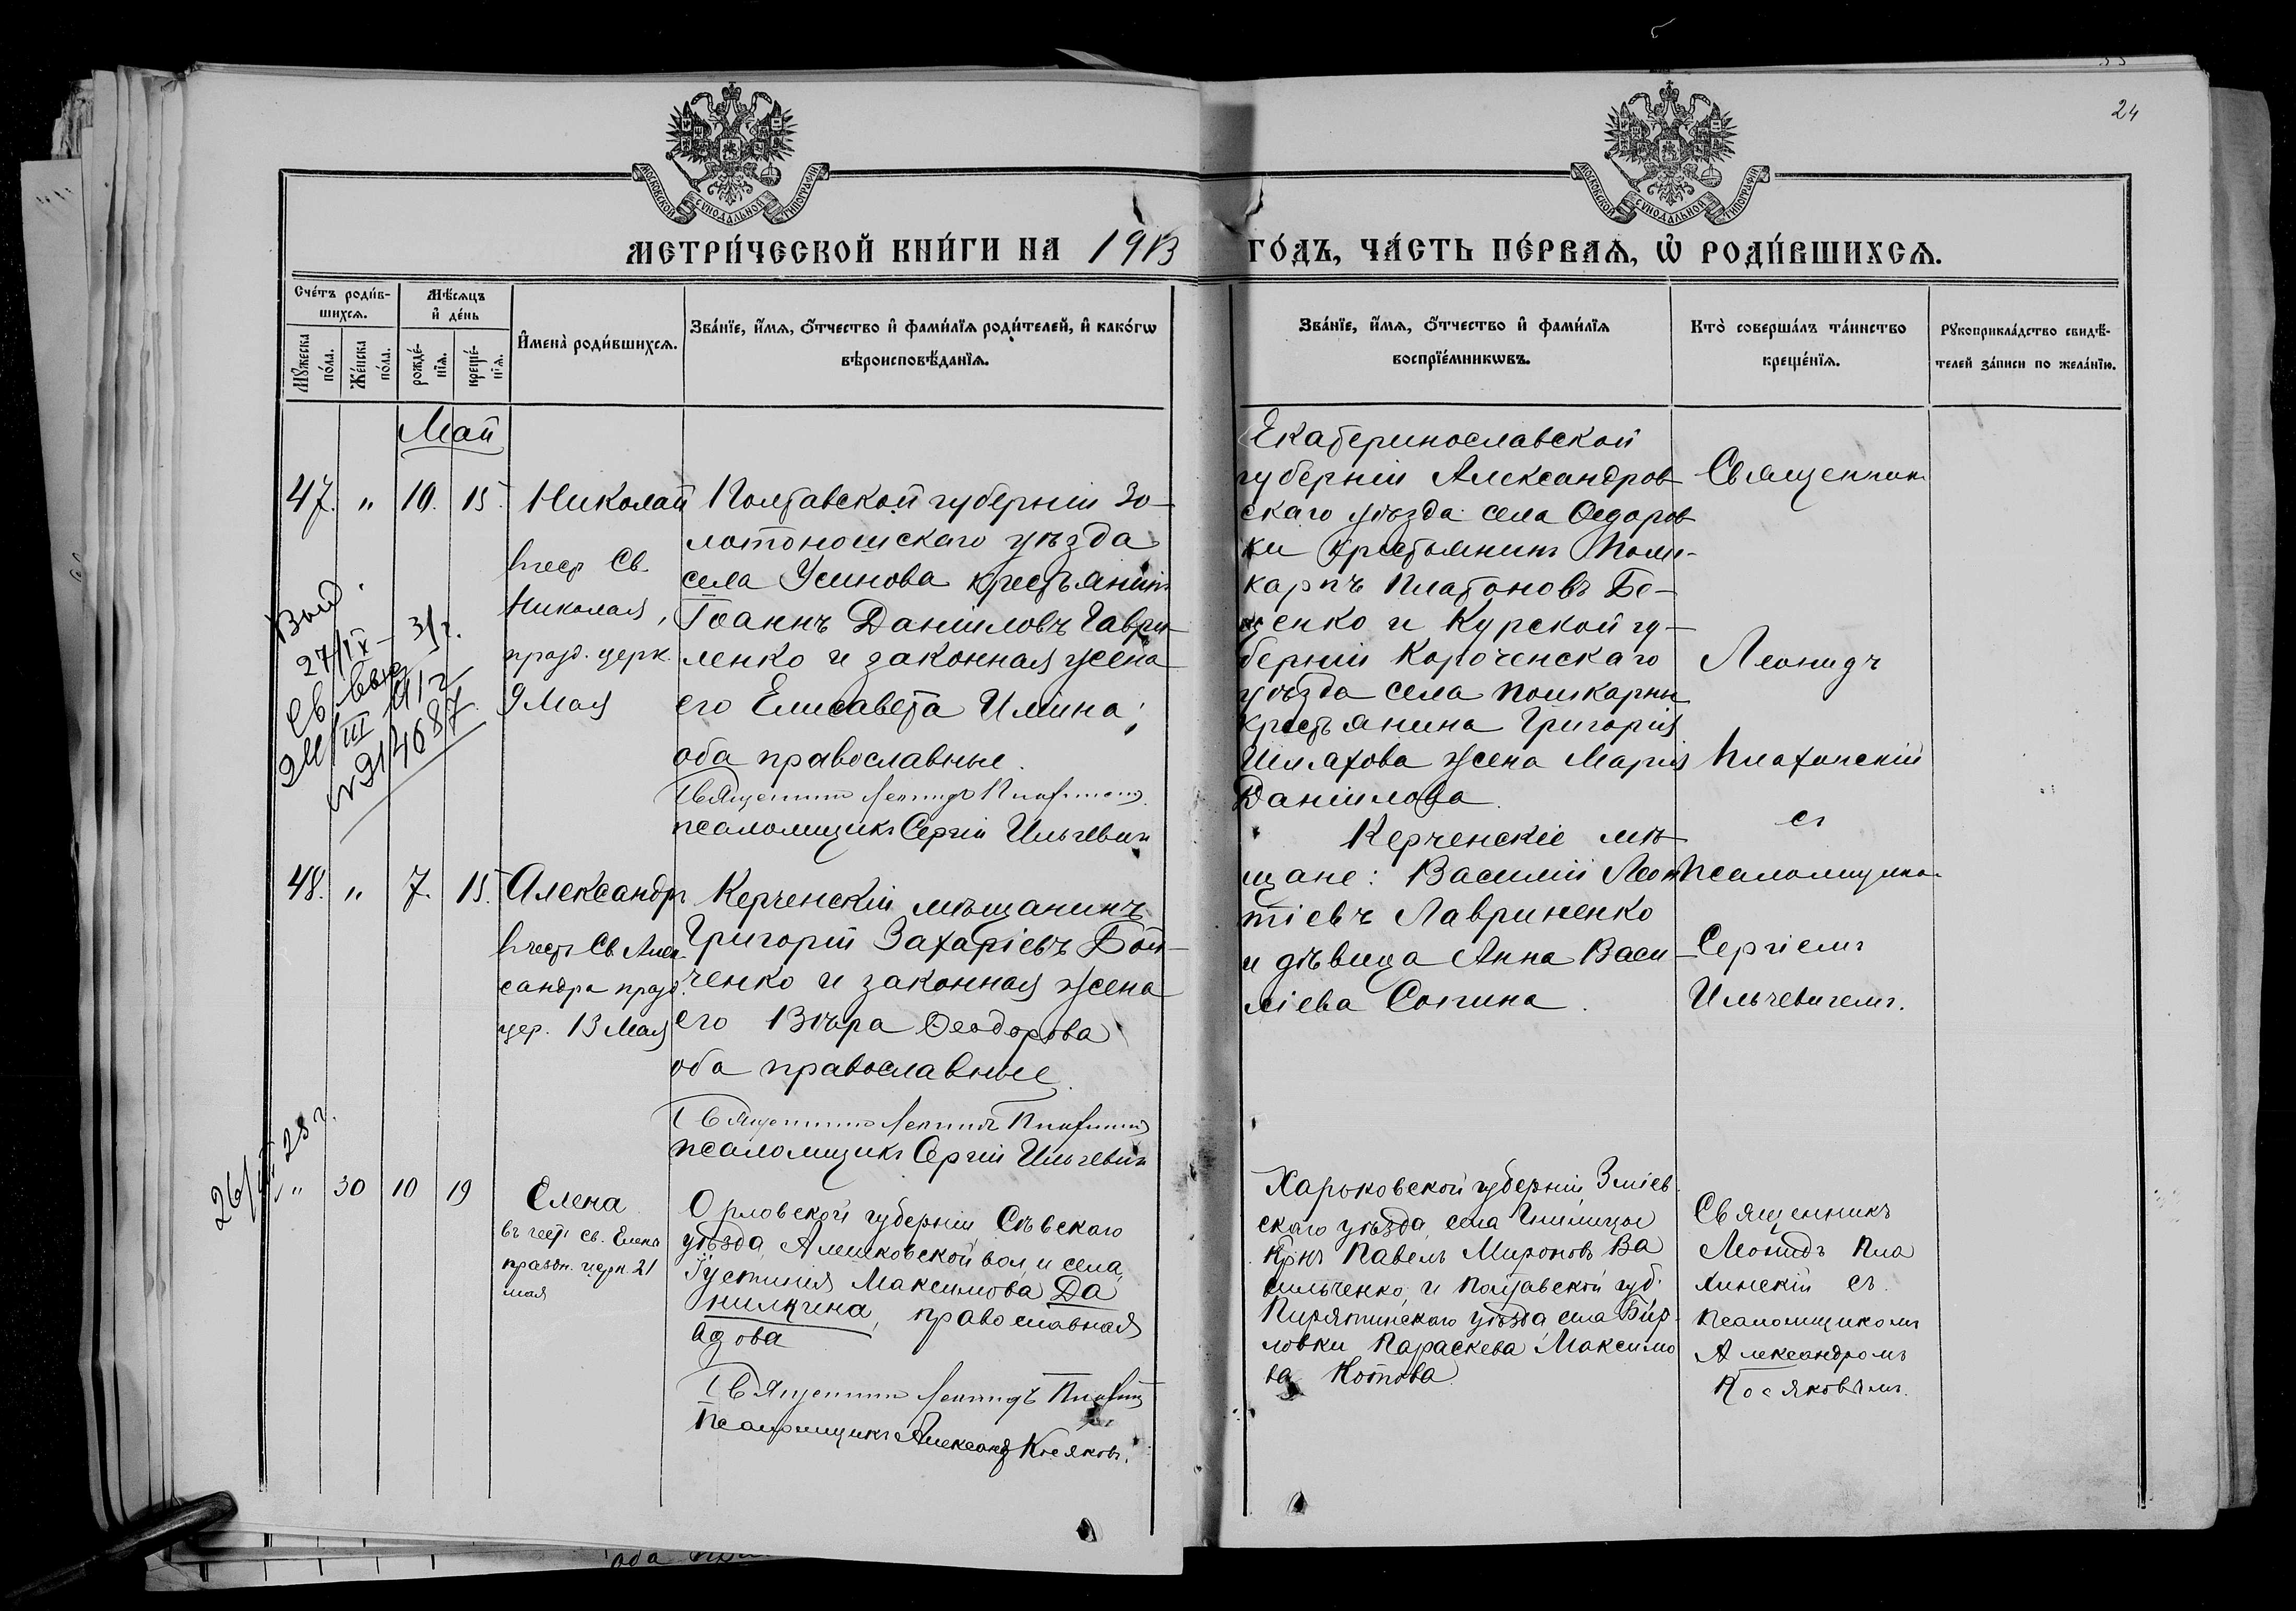 24
МОСКОВСКОЙ СѴНОДАЛЬНОЙ ТИПОГРАФІИ
МОСКОВСКОЙ СѴНОДАЛЬНОЙ ТИПОГРАФІИ
МЕТРИ́ЧЕСКОЙ КНИ́ГИ НА 1913 ГО́ДЪ, ЧА́СТЬ ПЕ́РВАѦ, Ѡ҆ РОДИ́ВШИХСѦ.
Сче́тъ роди́в-
шихсѧ.
Мꙋжеска по́ла.
Же́нска по́ла.
Мѣ́сѧцъ
и҆ де́нь
рожде́-
нїѧ.
креще́-
нїѧ.
И҆мена̀ роди́вшихсѧ.
Зва́нїе, и҆́мѧ, ѻ҆́тчество и҆ фами́лїѧ роди́телей, и҆ како́гѡ
вѣроисповѣ́данїѧ.
Зва́нїе, и҆́мѧ, ѻ҆́тчество и҆ фами́лїѧ
воспрїе́мникѡвъ.
Кто̀ соверша́лъ та́инство
креще́нїѧ.
Рꙋкоприкла́дство свидѣ́-
телей за́писи по жела́нїю.
Май
47. " 10. 15. Николай
въ чест Св.
Николая,
празд. церк.
9 Мая
Полтавской губерніи Зо-
лотоношскаго уѣзда
села Усинова крестьянинъ
Іоаннъ Даніиловъ Гаври-
ленко и законная жена
его Елисавета Илiина;
оба православные.
Священникъ Леонидъ
псаломщикъ Сергій Ильчевичъ
Екатеринославской
губерніи Александров-
скаго уѣзда села Ѳедоров-
ки крестьянинъ Поли-
карпъ Платоновъ Бе-
ценко и Курской гу-
берніи Короченскаго
уѣзда села
крестьянина Григорія
Шляхова жена Марія
Даніилова.
Священник
Леонидъ
Платинскій
съ
Псаломщико-
Сергіемъ
Ильчевичемъ.
27/IX 31 г.
III 41 г.
48. " 7. 15. Александръ
въ чест Св. Алек-
сандра празд.
цер. 13 Мая
Керченскій мѣщанинъ
Григорій Захаріевъ Бой-
ченко и законная жена
его Вѣра Ѳеодорова
оба православные.
Священникъ Леонидъ
псаломщикъ Сергій Ильчевичъ
Керченскіе мѣ-
щане: Василій Леон-
тіевъ Лавриненко
и дѣвица Анна Васи-
ліева Сопина.
28 г.
" 30 10 19 Елена
въ чест св. Елены
праздн. церк. 21
мая
Орловской губерніи Сѣвскаго
уѣзда, Алешковской вол. и села,
Іустинія Максимова Да
нилкина, православная
вдова
Священникъ Леонидъ
Псаломщикъ Александръ Косяковъ.
Харьковской губерніи, Зміев-
скаго уѣзда, села
Крнъ Павелъ Мироновъ Ва
сильченко, и Полтавской губ.
Пирятинскаго уѣзда села Бир-
ловки Параскева Максимо
ва Котова.
Священникъ
Леонидъ Пла
тинскій съ
Псаломщикомъ
Александромъ
Косяковымъ.